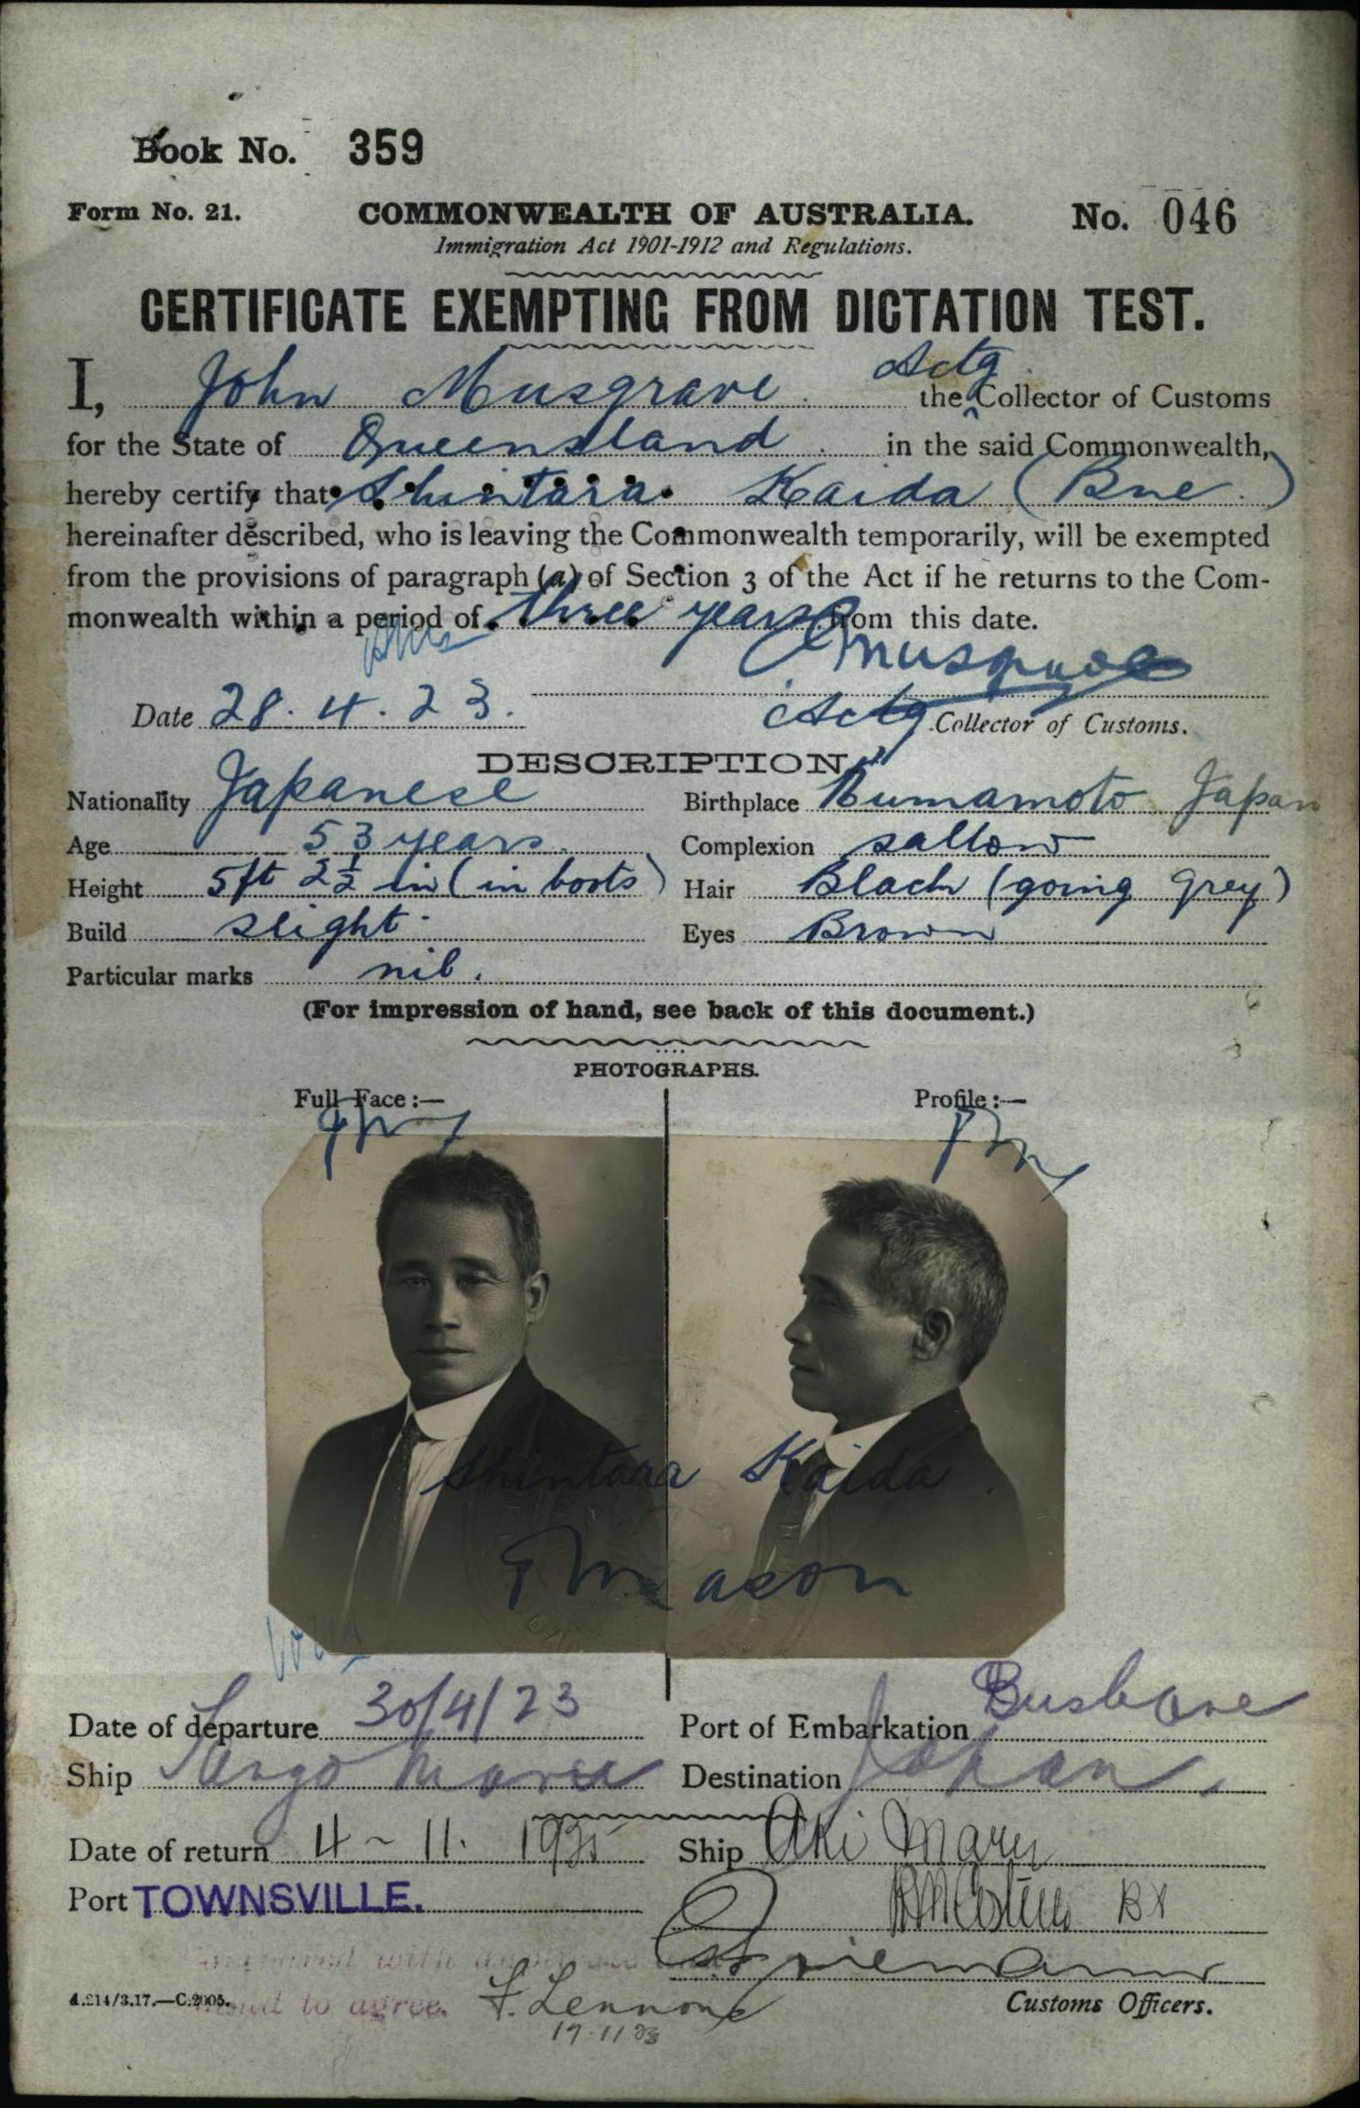 Book No. 359
Form No. 21. COMMONWEALTH OF AUSTRALIA. No. 046
Immigration Act 1901-1912 and Regulations.
CERTIFICATE EXEMPTING FROM DICTATION TEST.
Actg
I, John Musgrave the ^ Collector of Customs
for the State of Queensland in the said Commonwealth,
hereby certify that Shintara Kaida (Bne.)
hereinafter described, who is leaving the Commonwealth temporarily, will be exempted
from the provisions of paragraph (a) of Section 3 of the Act if he returns to the Com-
monwealth within a period of three years from this date.
Musgrave
Date 28.4.23. Actg Collector of Customs.
DESCRIPTION
Nationality Japanese Birthplace Kumamoto Japan
Age 53 years. Complexion sallow
Height 5ft 2½ in (in boots) Hair Black (going grey)
Build slight. Eyes Brown
Particular marks nil.
(For impression of hand, see back of this document.)
PHOTOGRAPHS.
Full Face:— Profile:—
Shintara Kaida
Mason
Date of departure 30/4/23 Port of Embarkation Brisbane
Ship Tango Maru Destination Japan.
Date of return 4-11. Ship Aki Maru
Port TOWNSVILLE.
to agree. F. Lennon
d.214/3.17.—C.2005. Customs Officers.